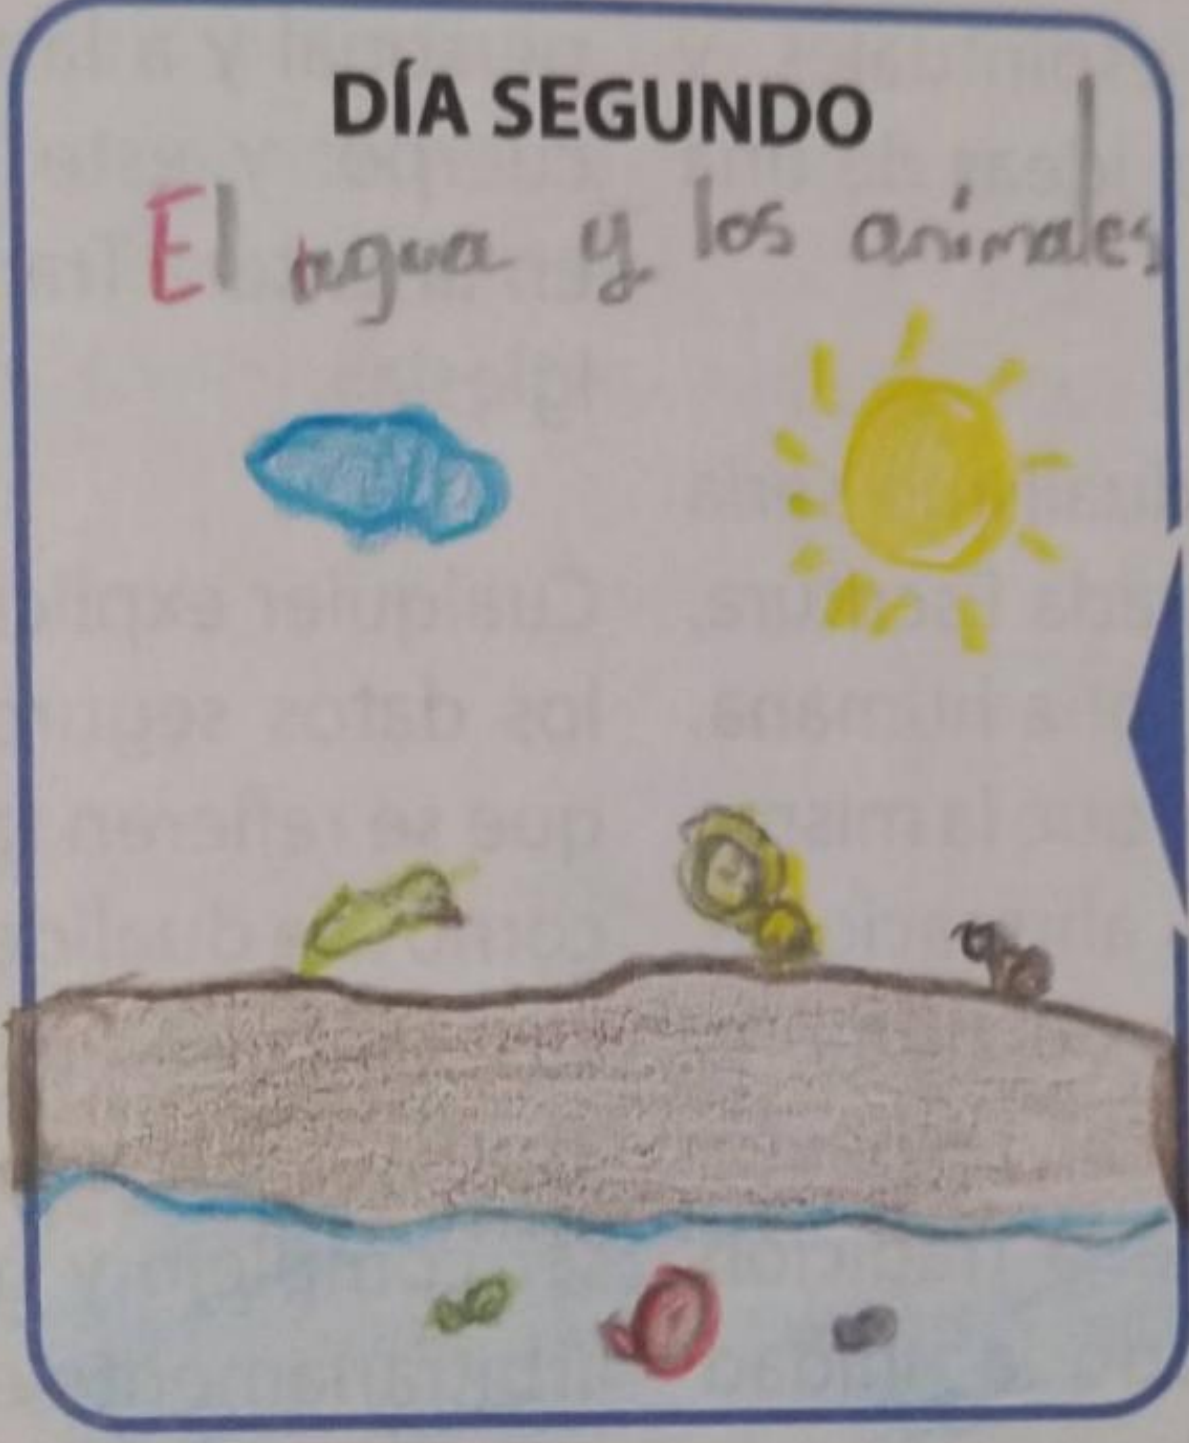 DÍA SEGUNDO
El agua y los animales